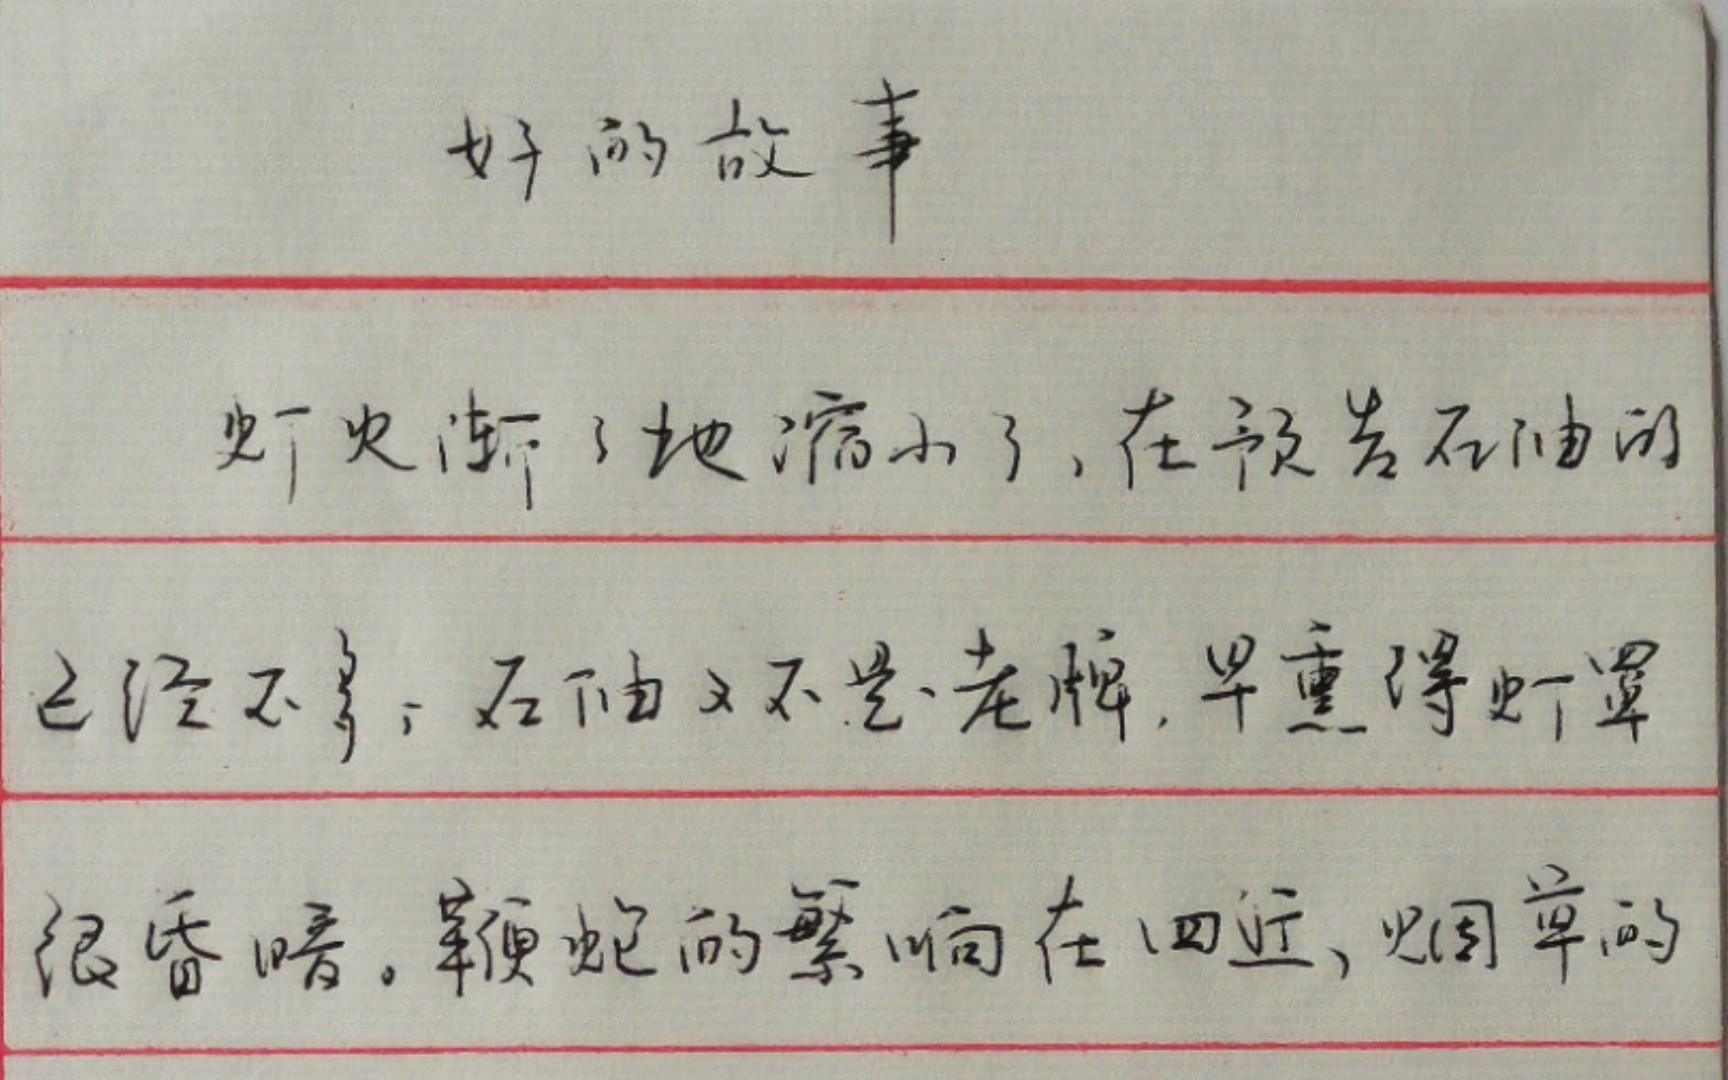 好的故事
灯火渐々地缩小了,在预告石油的
已经不多;石油又不是老牌,早熏得灯罩
很昏暗。鞭炮的繁响在四近,烟草的